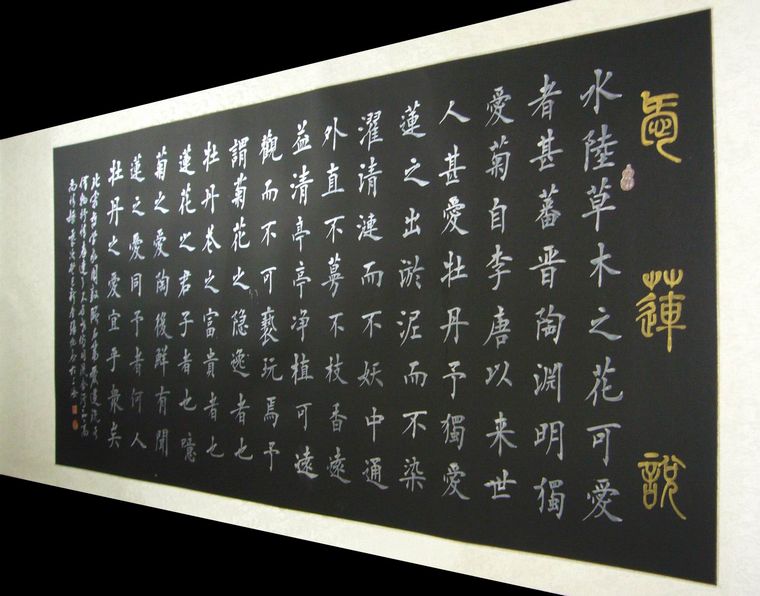 愛蓮說
水陸草木之花可愛
者甚蕃晋陶淵明獨
愛菊自李唐以来世
人甚愛牡丹予獨愛
蓮之出淤泥而不染
濯清漣而不妖中通
外直不蔓不枝香遠
益清亭亭净植可遠
觀而不可褻玩焉予
謂菊花之隐逸者也
牡丹花之富貴者也
蓮花之君子者也噫
菊之愛陶後鮮有聞
蓮之愛同予者何人
牡丹之愛宜乎衆矣
北宋哲學家周敦頤